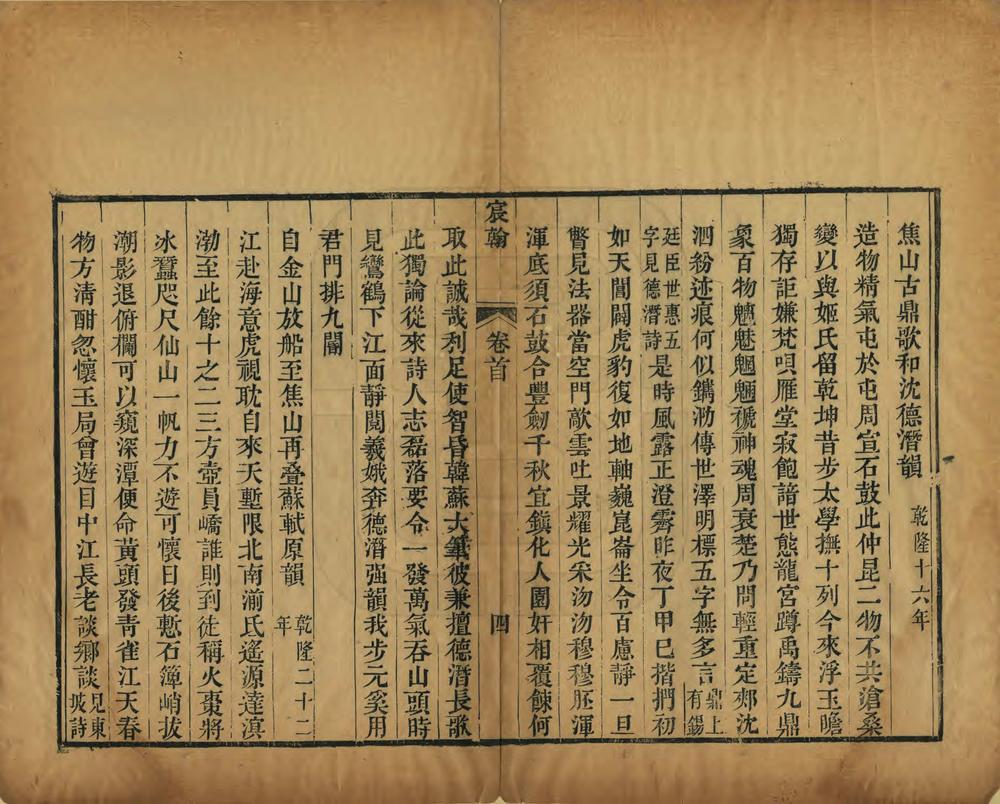 焦山古鼎歌和沈德潛韻 乾隆十六年
造物精氣屯於屯周宣石鼓此仲昆二物不共滄桑
變以與姬氏留乾坤昔步太學撫十列今來浮玉瞻
獨存詎嫌梵唄雁堂寂飽諳世態龍宮蹲禹鑄九鼎
象百物魑魅魍魎褫神魂周衰楚乃問輕重定郟沈
泗紛迹痕何似鐫泐傳世澤明標五字無多言鼎上有錫
廷臣世惠五字見德潛詩是時風露正澄霽昨夜丁甲已揩捫初
如天閶闢虎豹復如地軸巍崑崙坐令百慮靜一旦
瞥見法器當空門敵雲吐景耀光采沕沕穆穆胚渾
渾底須石鼓合豐劒千秋宜鎮化人園奸相覆餗何
宸翰 卷首 四
取此誠哉利足使智昏韓蘇大筆彼兼擅德潛長歌
此獨論從來詩人志磊落要令一發萬氣吞山頭時
見鸞鶴下江面靜閱羲娥奔德潛强韻我步元奚用
君門排九閽
自金山放船至焦山再叠蘇軾原韻 乾隆二十二年
江赴海意虎視耽自來天塹限北南湔氐遙源達滇
渤至此餘十之二三方壺員嶠誰則到徒稱火棗將
冰蠶咫尺仙山一帆力不遊可懷日後慙石簰峭拔
潮影退俯欄可以窺深潭便命黃頭發青雀江天春
物方淸酣忽懷玉局曾遊目中江長老談鄉談見東坡詩